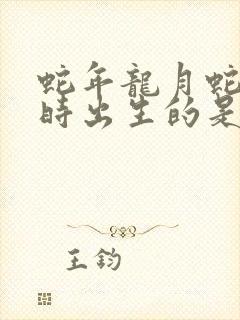 蛇年龍月蛇
時出生的是
王鈞